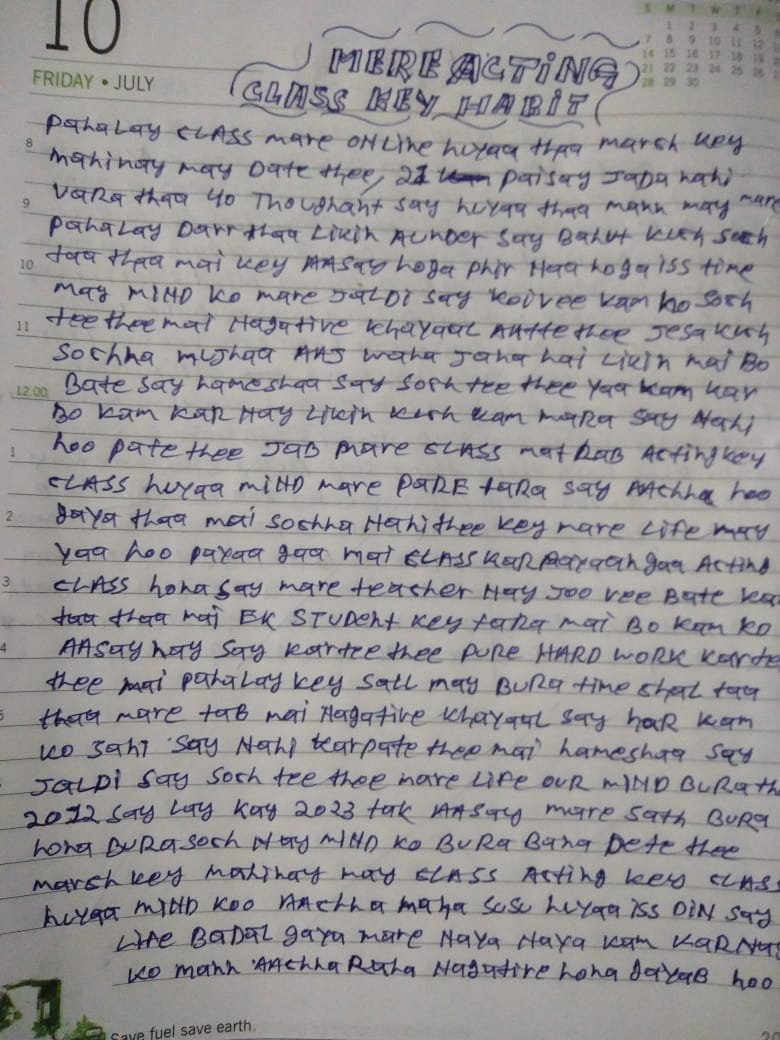 10
FRIDAY • JULY
S M T W T F
1 2 3 4 5
7 8 9 10 11 12
14 15 16 17 18 19
21 22 23 24 25 26
28 29 30
MERE ACTiNG
CLASS KEY HABiT
8 PaHaLay CLASS mare ONLine huyaa thaa marsh key
mahinay may Date thee, 21 paisay JADA nahi
9 VaRa thaa 40 Thoughant say huyaa thaa mann may mare
PahaLay Darr thaa Likin AUNDER say Bahut Kush soch
10 taa thaa mai key AASay hoga phir Naa hoga iss time
may MiND ko mare JALDi say koi vee kam ko soch
11 tee thee mai Nagative khayaaL Autte thee Jesa kush
Sochna mujhaa AAJ waha Jana hai Likin mai Bo
12.00 Bate say hameshaa say soch tee thee yaa kam kar
Bo kam KaR Nay Likin kush kam maRa say Nahi
1 hoo pate thee JAB mare CLASS matLaB Acting key
CLASS huyaa miND mare PaRE taRa say AAchha hoo
2 gaya thaa mai sochna Nahi thee key mare Life may
yaa hoo payaa gaa mai CLASS KaR Aayaangaa Acting
3 CLASS hona say mare teacher Nay Joo vee Bate Ka
taa thaa mai EK STUDent key taRa mai Bo kam ko
4 AASay hay say kartee thee PURE HARD WORK karte
thee mai pahaLay key SaLL may BuRa time chaL taa
5 thaa mare taB mai Nagative khayaaL say haR kam
ko sahi say Nahi karpate thee mai hameshaa say
JaLDi say soch tee thee mare LiFe OUR MiND BuRa th
2012 say Lay kay 2023 tak AASay mare sath BuRa
hona BuRa soch Nay MiND ko BuRa Bana Dete thee
marsh key mahinay may CLASS Acting key CLASS
huyaa miND koo AAchha maha susu huyaa iss DiN say
Life BaDaL gaya mare Naya Naya kam KaR Nas
ko mann AAchha Raha Nagative hona gayaB hoo
Save fuel save earth.
20